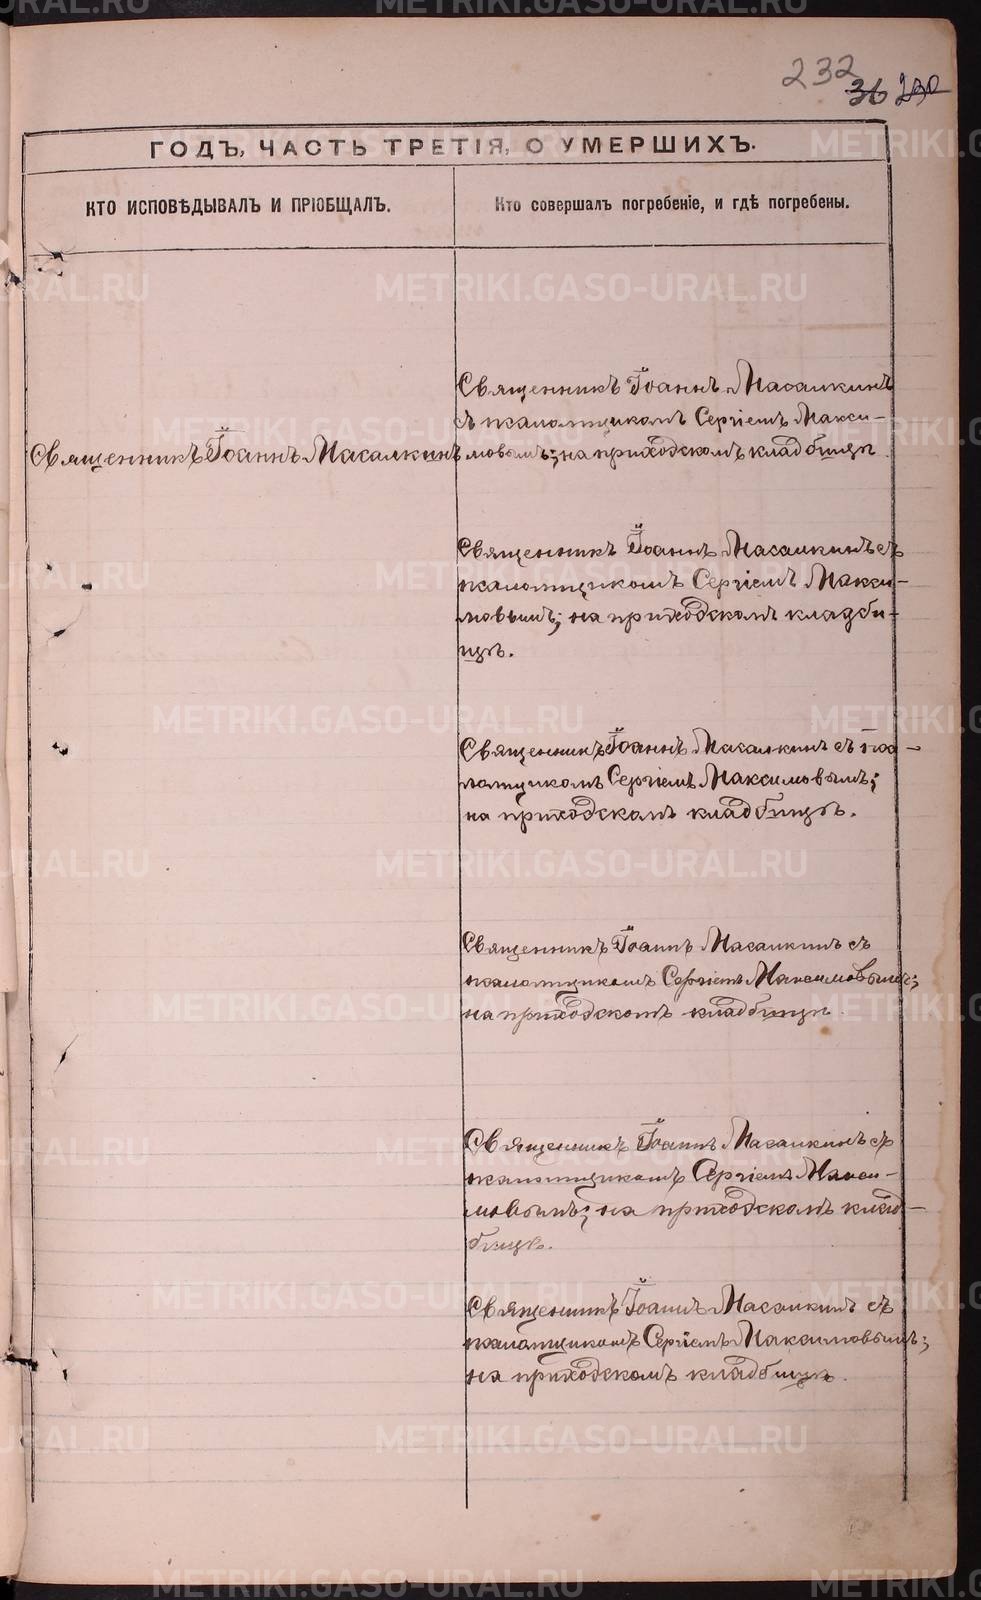 232
36 230
ГОДЪ, ЧАСТЬ ТРЕТІЯ, О УМЕРШИХЪ.
КТО ИСПОВѢДЫВАЛЪ И ПРІОБЩАЛЪ.
Кто совершалъ погребеніе, и гдѣ погребены.
Священникъ Іоаннъ Масалкинъ
Священникъ Іоаннъ Масалкинъ
съ псаломщикомъ Сергіемъ Макси-
мовымъ; на приходскомъ кладбищѣ
Священникъ Іоаннъ Масалкинъ съ
псаломщикомъ Сергіемъ Макси-
мовымъ; на приходскомъ кладби-
щѣ.
Священникъ Іоаннъ Масалкинъ съ пса-
ломщикомъ Сергіемъ Максимовымъ;
на приходскомъ кладбищѣ.
Священникъ Іоаннъ Масалкинъ съ
псаломщикомъ Сергіемъ Максимовымъ;
на приходскомъ кладбищѣ
Священникъ Іоаннъ Масалкинъ съ
псаломщикомъ Сергіемъ Макси-
мовымъ; на приходскомъ клад-
бищѣ.
Священникъ Іоаннъ Масалкинъ съ
псаломщикомъ Сергіемъ Максимовымъ;
на приходскомъ кладбищѣ.
METRIKI.GASO-URAL.RU